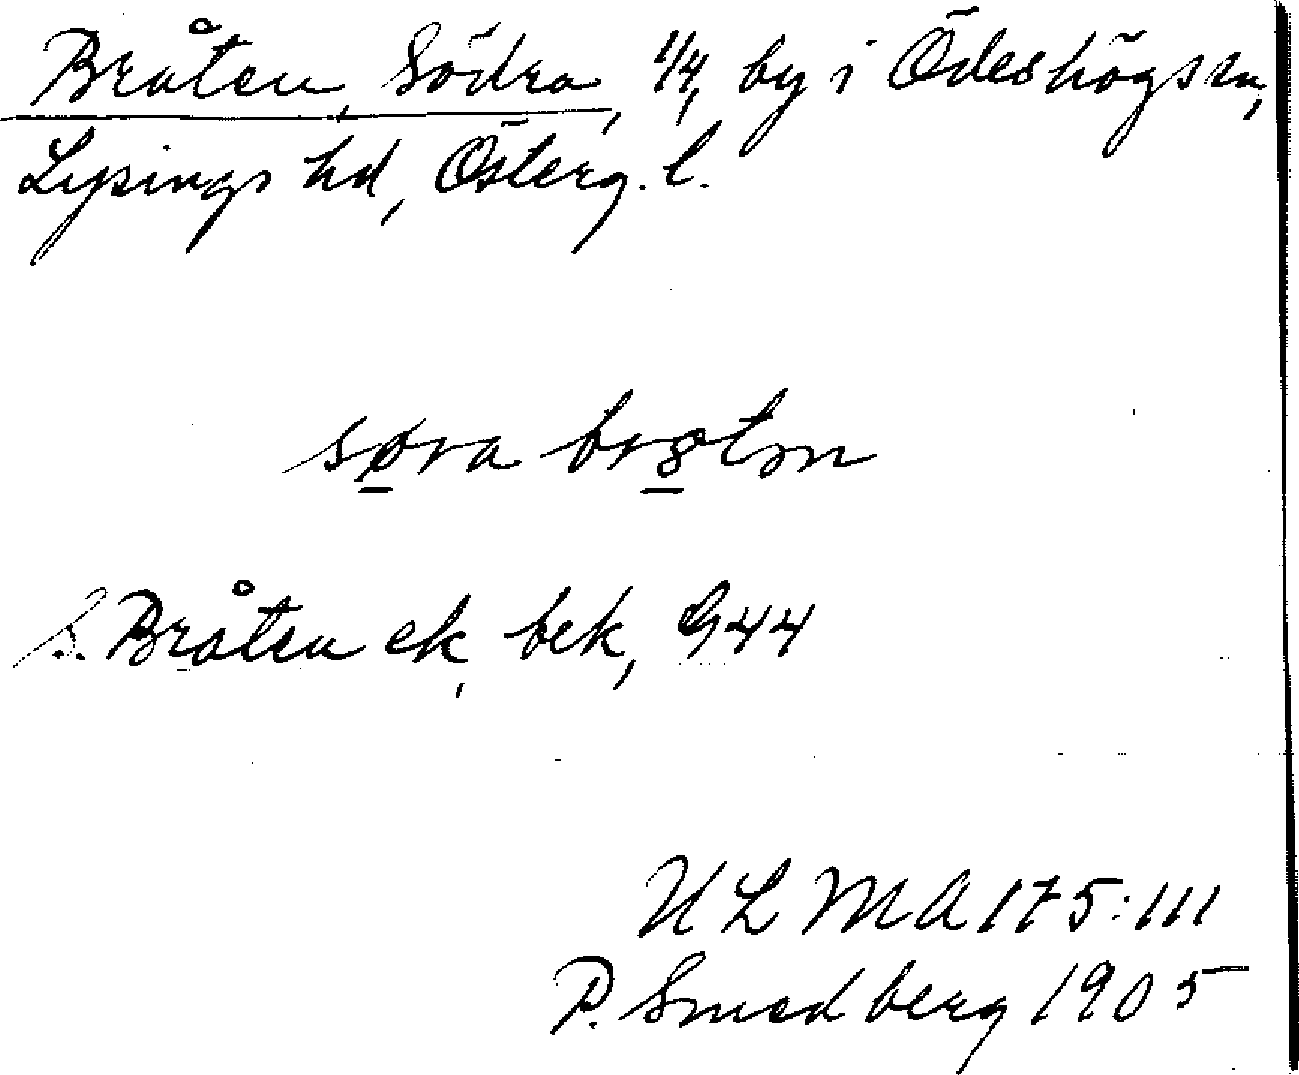 Bråten, Södra, 1/4, by i Ödeshögs sn,
Lysings hd, Österg. l.
søra br8tn
S. Bråten ek, bek, G44
ULMA 175:111
P. Smedberg 1905